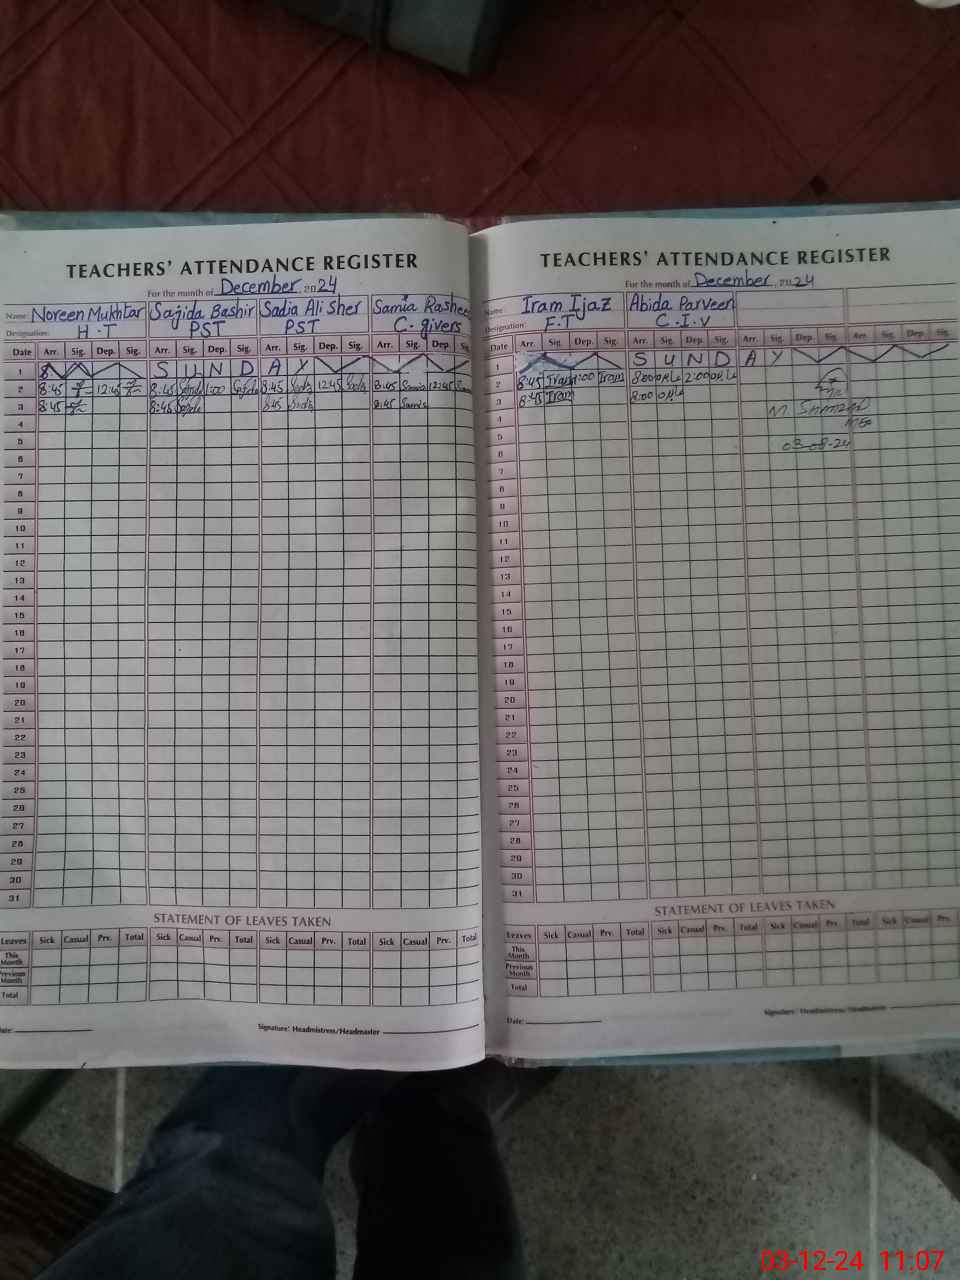 TEACHERS' ATTENDANCE REGISTER
For the month of December, 2024
Name: Noreen Mukhtar Sajida Bashir Sadia Ali Sher Samia Rasheed
Designation: H.T PST PST C.givers
Date Arr. Sig. Dep. Sig. Arr. Sig. Dep. Sig. Arr. Sig. Dep. Sig. Arr. Sig. Dep. Sig.
1 S U N D A Y
2 8:45 12:45 8:45 1:00 8:45 12:45 8:45 Samia 12:45
3 8:45 8:45 8:45 8:45 Samia
4
5
6
7
8
9
10
11
12
13
14
15
16
17
18
19
20
21
22
23
24
25
26
27
28
29
30
31
STATEMENT OF LEAVES TAKEN
Leaves Sick Casual Prv. Total Sick Casual Prv. Total Sick Casual Prv. Total Sick Casual Prv. Total
This Month
Previous Month
Total
Date: Signature: Headmistress/Headmaster
TEACHERS' ATTENDANCE REGISTER
For the month of December, 2024
Name: Iram Ijaz Abida Parveen
Designation: F.T C.I.V
Date Arr. Sig. Dep. Sig. Arr. Sig. Dep. Sig. Arr. Sig. Dep. Sig. Arr. Sig. Dep. Sig.
1 S U N D A Y
2 8:45 Iram 1:00 Iram 8:00 2:00
3 8:45 Iram 8:00
4
5 03-08-24
6
7
8
9
10
11
12
13
14
15
16
17
18
19
20
21
22
23
24
25
26
27
28
29
30
31
STATEMENT OF LEAVES TAKEN
Leaves Sick Casual Prv. Total Sick Casual Prv. Total Sick Casual Prv. Total Sick Casual Prv.
This Month
Previous Month
Total
Date: Signature: Headmistress/Headmaster
03-12-24 11:07